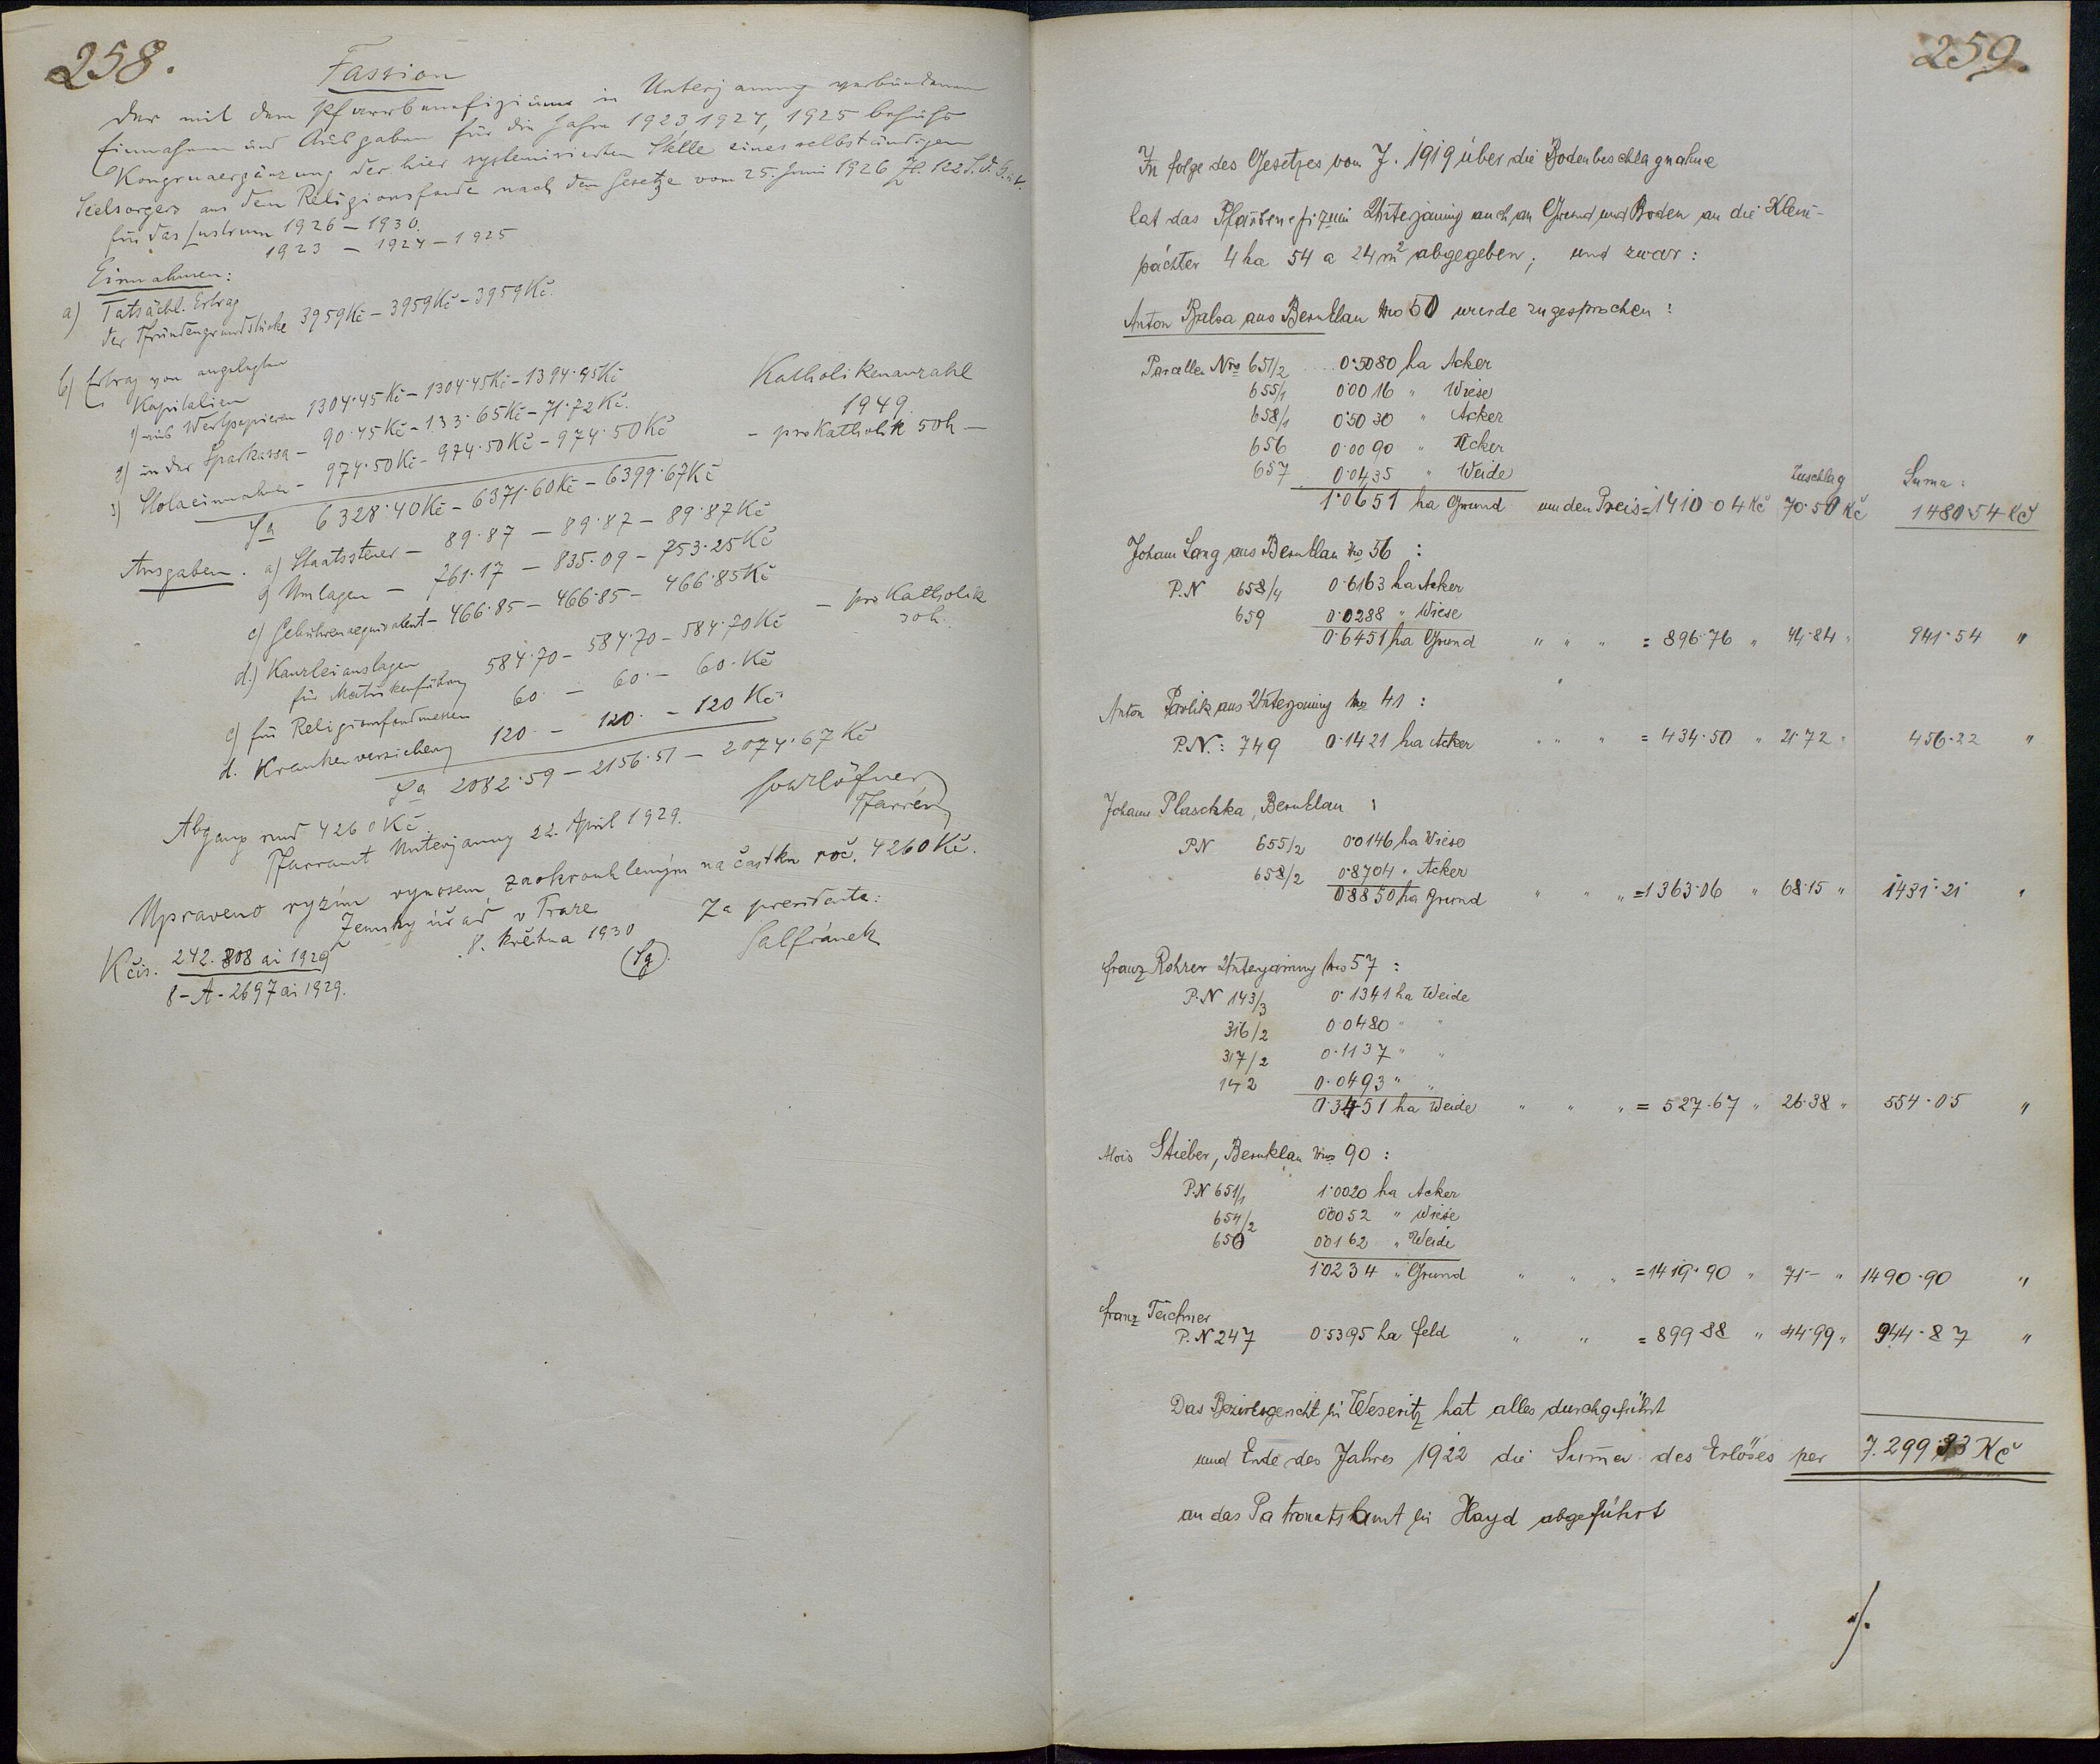 258.
Fassion
der mit dem Pfarrbenefizium in Unterjamny verbundenen
Einnahmen und Ausgaben für die Jahre 1923 1924, 1925 behufs
Kongruaergänzung der hier systemisierten Stelle eines selbständigen
Seelsorgers aus dem Religionsfonde nach dem Gesetze vom 25. Juni 1926 Zl. 122 S.d.G.u.V.
für das Lustrum 1926 – 1930.
1923 – 1924 – 1925
Einnahmen:
a) Tatsächl. Ertrag
der Pfründengrundstücke 3959Kč – 3959Kč – 3959Kč.
b) Ertrag von angelegten
Kapitalien
1) aus Wertpapieren 1304·45Kč – 1304·45Kč – 1394·45Kč
2) in der Sparkassa – 90·45Kč – 133·65Kč – 71·72Kč.
3) Stolaeinnahmen – 974·50Kč – 974·50Kč – 974·50Kč
Katholikenanzahl
1949.
– pro Katholik 50h –
Sa 6328·40Kč – 6371·60Kč – 6399·67Kč
Ausgaben. a) Staatssteuer – 89·87 – 89·87 – 89·87Kč
b) Umlagen – 761·17 – 835·09 – 753·25Kč
c) Gebührenaequivalent – 466·85 – 466·85 – 466·85Kč
d.) Kanzleiauslagen
für Matrikenführung 584·70 – 584·70 – 584·70Kč – pro Katholik
30h.
e) für Religionsfondmessen 60· – 60· – 60·Kč
d. Krankenversicherg 120 – 120 – 120 Kč
Sa 2082·59 – 2156·51 – 2074·67Kč
Abgang rund 4260Kč
Pfarramt Unterjamny 22. April 1929.
Pfarrer
Upraveno ryzím výnosem zaokrouhleným na částku roč. 4260Kč.
Zemský úřad v Praze
8. května 1930
Za presidenta:
(Sg)
Galfránek
Kčís. 242.808 ai 1929
8-A-2697 ai 1929.
259.
In folge des Gesetzes vom J. 1919 über die Bodenbeschlagnahme
hat das Pfarrbenefizium Unterjamny auch an Grund und Boden an die Klein-
pächter 4 ha 54 a 24 m² abgegeben; und zwar:
Anton Balsa aus Bernklau Nro 60 wurde zugesprochen:
Parcellen Nro 651/2 .... 0·5080 ha Acker
655/1 0·0016 " Wiese
658/1 0·5030 " Acker
656 0·0090 " Acker
657 0·0435 " Weide
Zuschlag Suma:
1·0651 ha Grund um den Preis = 1410·04 Kč 70·50 Kč 1480·54 Kč
Johann Lang aus Bernklau Nro 56 :
P.N 658/4 0·6163 ha Acker
659 0·0288 " Wiese
0·6451 ha Grund " " " = 896·76 " 44·84 " 941·54 "
Anton Pavlik aus Unterjamny Nro 41 :
P.N.: 749 0·1421 ha Acker " " " = 434·50 " 21·72 " 456·22 "
Johann Plaschka, Bernklau :
PN 655/2 0·0146 ha Wiese
658/2 0·8704 " Acker
0·8850 ha Grund " " " = 1363·06 " 68·15 " 1431·21 "
Franz Rohrer Unterjamny Nro 57 :
P.N 143/3 0·1341 ha Weide
316/2 0·0480 " "
317/2 0·1137 " "
142 0·0493 " "
0·3451 ha Weide " " " = 527·67 " 26·38 " 554·05 "
Alois Stieber, Bernklau Nro 90 :
P.N 651/1 1·0020 ha Acker
654/2 0·0052 " Wiese
650 0·0162 " Weide
1·0234 " Grund " " " = 1419·90 " 71·– " 1490·90 "
Franz Teichner
P.N 247 0·5395 ha Feld " " = 899·88 " 44·99 " 944·87 "
Das Bezirksgericht in Weseritz hat alles durchgeführt
und Ende des Jahres 1922 die Suma des Erlöses per 7.299·33 Kč
an das Patronatsamt in Hayd abgeführt
./.